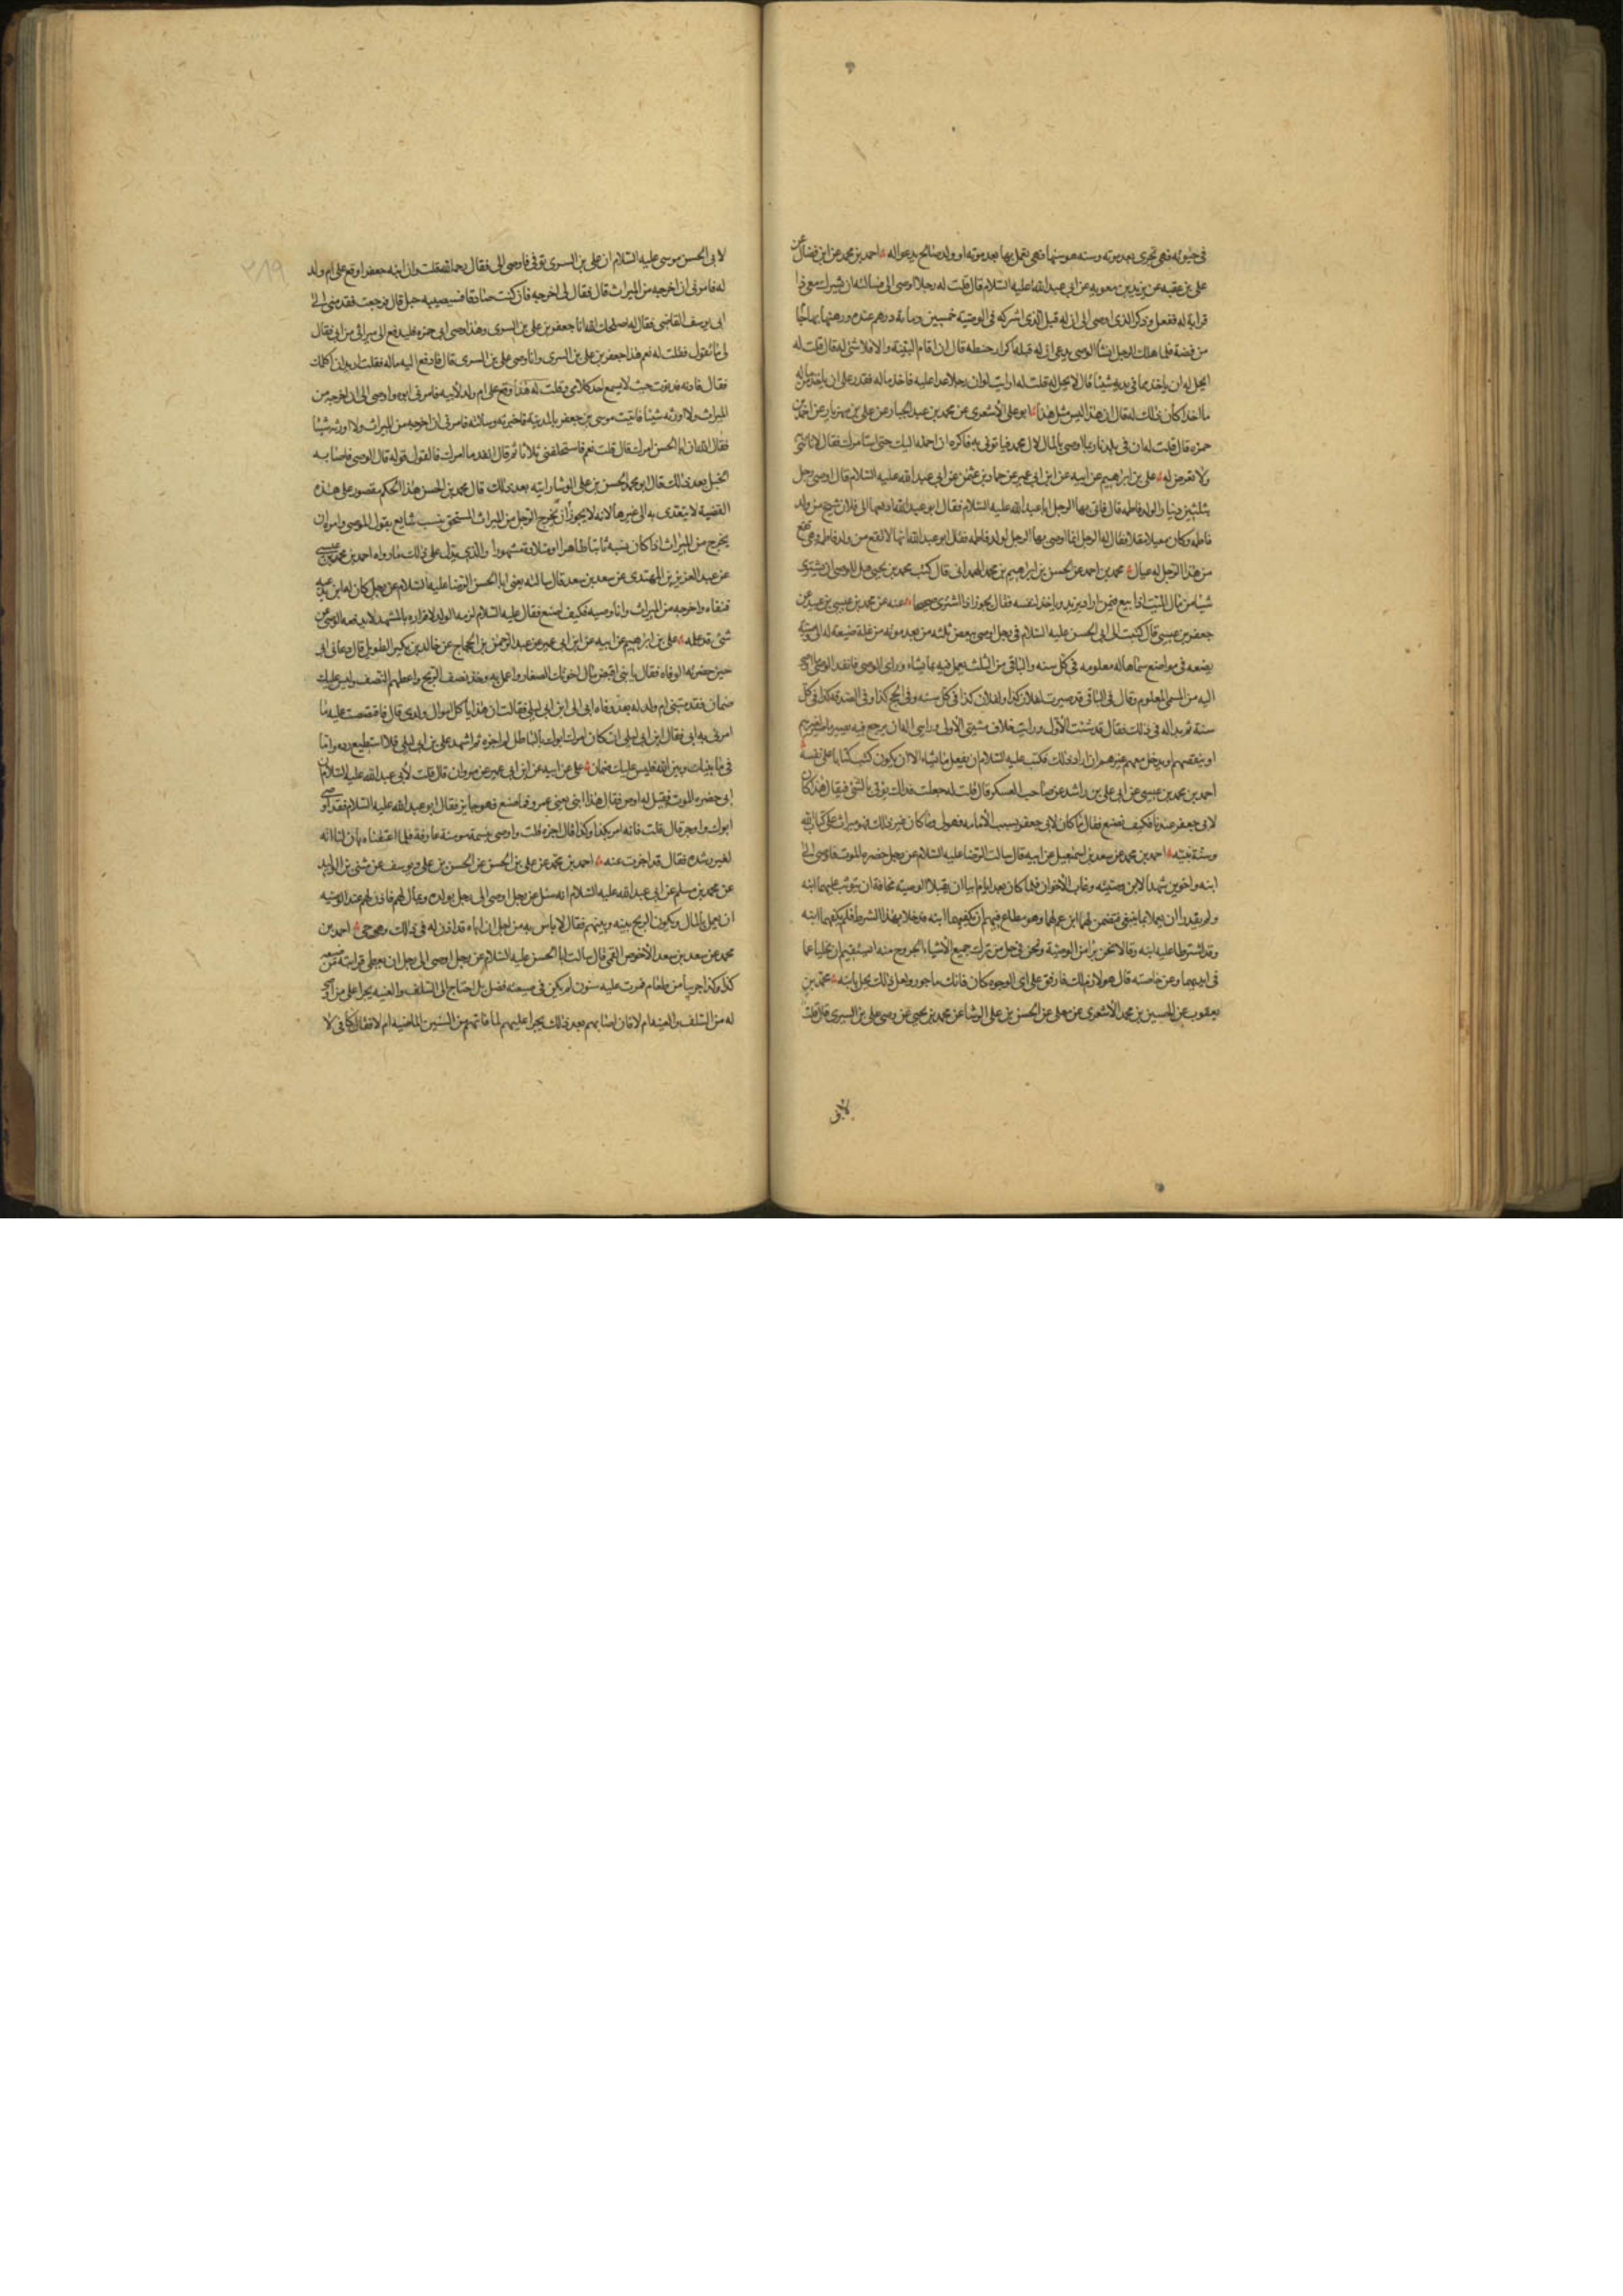 في حيوته فهي تجري بعد موته وسنة هو سنها فهي يعمل بها بعد موته او ولد صالح يدعو له احمد بن محمد عن ابن فضال عن
علي بن عقبه عن يزيد بن معويه عن ابي عبد الله عليه السلام قال قلت له ان رجلا اوصى الي فسالته ان يشرك معي ذا
قرابة له ففعل وذكر الذي اوصى الي ان له قبل الذي اشركه في الوصية خمسين ومائة درهم عنده ورهنها بها جاما
من فضة فلما هلك الرجل انشأ الوصي يدعي ان له قبله اكرار حنطه قال ان اقام البينة والا فلا شئ له قال قلت له
ايحل له ان ياخذ مما في يديه شيئا قال لا يحل له قلت له ارايت لو ان رجلا عدا عليه فاخذ ماله فقدر على ان ياخذ من ماله
ما اخذ اكان ذلك له فقال ان هذا ليس مثل هذا ابو علي الاشعري عن محمد بن عبد الجبار عن علي بن مهزيار عن احمد بن
حمزه قال قلت له ان في بلدنا ربما اوصي بالمال لال محمد فياتوني به فاكره ان احمله اليك حتى استامرك فقال لا تاتني
ولا تعرض له علي بن ابرهيم عن ابيه عن ابن ابي عمير عن حماد بن عثمن عن ابي عبد الله عليه السلام قال اوصى رجل
بثلثين دينارا لولد فاطمه قال فاتى بها الرجل ابا عبد الله عليه السلام فقال ابو عبد الله ادفعها الى فلان شيخ من ولد
فاطمه وكان معيلا مقلا فقال له الرجل انما اوصى بها الرجل لولد فاطمه فقال ابو عبد الله انها لا تقع من ولد فاطمه وهي تقع
من هذا الرجل له عيال محمد بن احمد عن الحسن بن ابراهيم بن محمد الهمداني قال كتب محمد بن يحيى هل للوصي ان يشتري
شيئا من مال الميت اذا بيع فيمن زاد يزيد وياخذ لنفسه فقال يجوز اذا اشترى صحيحا عنه عن محمد بن عيسى بن عبيد عن
جعفر بن عيسى قال كتبت الى ابي الحسن عليه السلام في رجل اوصى ببعض ثلثه من بعد موته من غلة ضيعة له الى وصيه
يضعه في مواضع سماها له معلومه في كل سنه والباقي من الثلث يعمل فيه بما يشاء وراى الوصي فانفذ الوصي ما اوصى
اليه من المسمى المعلوم وقال في الباقي قد صيرت لفلان كذا ولفلان كذا في كل سنه وفي الحج كذا وفي الصدقه كذا في كل
سنة ثم بدا له في ذلك فقال قد شئت الاول ورايت خلاف مشيتي الاولى ورايي اله ان يرجع فيه ويصير ما صير لغيرهم
او ينقصهم او يدخل معهم غيرهم ان اراد ذلك فكتب عليه السلام ان يفعل ما يشاء الا ان يكون كتب كتابا على نفسه
احمد بن محمد بن عيسى عن ابي علي بن راشد عن صاحب العسكر قال قلت له جعلت فداك يؤتى بالشئ فيقال هذا كان
لابي جعفر عندنا فكيف نصنع فقال ما كان لابي جعفر بسبب الامامه فهو لي وما كان غير ذلك فهو ميراث على كتاب الله
وسنة نبيه احمد بن محمد عن سعد بن اسمعيل عن ابيه قال سالت الرضا عليه السلام عن رجل حضره الموت فاوصى الى
ابنه واخوين شهد الابن وصيته وغاب الاخوان فلما كان بعد ايام ابيا ان يقبلا الوصية مخافة ان يتوثب عليهما ابنه
ولم يقدرا ان يعملا بما ينبغي فضمن لهما ابن عم لهما وهو مطاع فيهم ان يكفيهما ابنه فدخلا بهذا الشرط فلم يكفهما ابنه
وقد اشترطا عليه ابنه وقالا نحن برآء من الوصية ونحن في حل من ترك جميع الاشياء والخروج منه ايستقيم ان يخليا عما
في ايديهما وعن خاصته قال هو لازم لك فارفق على اي الوجوه كان فانك ماجور ولعل ذلك يحل بابنه محمد بن
يعقوب عن الحسين بن محمد الاشعري عن معلى عن الحسن بن علي الوشا عن محمد بن يحيى عن وصي علي بن السري قال قلت
لابي
لابي الحسن موسى عليه السلام ان علي بن السري توفي فاوصى الي فقال رحمه الله قلت وان ابنه جعفرا وقع على ام ولد
له فامرني ان اخرجه من الميراث قال فقال لي اخرجه فان كنت صادقا فسيصيبه خبل قال فرجعت فقدمني الى
ابي يوسف القاضي فقال له اصلحك الله انا جعفر بن علي بن السري وهذا وصي ابي فمره فليدفع الي ميراثي من ابي فقال
لي ما تقول فقلت له نعم هذا جعفر بن علي بن السري وانا وصي علي بن السري قال فادفع اليه ماله فقلت اريد ان اكلمك
فقال فادنه فدنوت حيث لا يسمع احد كلامي وقلت له هذا وقع على ام ولد لابيه فامرني ابوه واوصى الي ان اخرجه من
الميراث ولا اورثه شيئا فاتيت موسى بن جعفر بالمدينة فاخبرته وسالته فامرني ان اخرجه من الميراث ولا اورثه شيئا
فقال الله ان ابا الحسن امرك قال قلت نعم فاستحلفني ثلاثا ثم قال انفذ ما امرك فالقول قوله قال الوصي فاصابه
الخبل بعد ذلك قال ابو محمد الحسن بن علي الوشا رايته بعد ذلك قال محمد بن الحسن هذا الحكم مقصور على هذه
القضية لا يتعدى به الى غيرها لانه لا يجوز ان يخرج الرجل من الميراث المستحق بنسب شايع بقول الموصي وامره ان
يخرج من الميراث اذا كان نسبه ثابتا ظاهرا وميلاده مشهورا والذي يدل على ذلك ما رواه احمد بن محمد بن عيسى
عن عبد العزيز بن المهتدي عن سعد بن سعد قال سالته يعني ابا الحسن الرضا عليه السلام عن رجل كان له ابن يدعيه
فنفاه واخرجه من الميراث وانا وصيه فكيف اصنع فقال عليه السلام لزمه الولد لاقراره بالمشهد لا يدفعه الوصي عن
شئ قد علمه علي بن ابرهيم عن ابيه عن ابن ابي عمير عن عبد الرحمن بن الحجاج عن خالد بن بكير الطويل قال دعاني ابي
حين حضرته الوفاه فقال يا بني اقبض مال اخوتك الصغار واعمل به وخذ نصف الربح واعطهم النصف وليس عليك
ضمان فقدمتني ام ولد له بعد وفاه ابي الى ابن ابي ليلى فقالت ان هذا ياكل اموال ولدي قال فاقتصصت عليه ما
امرني به ابي فقال ابن ابي ليلى ان كان امرك ابوك بالباطل لم اجزه ثم اشهد علي بن ابي ليلى فلا استطيع رده واما
في ما بينك وبين الله فليس عليك ضمان علي عن ابيه عن ابن ابي عمير عن مروان قال قلت لابي عبد الله عليه السلام ان
ابي حضره الموت فقيل له اوص فقال هذا ابني يعني عمر وفما صنع فهو جايز فقال ابو عبد الله عليه السلام فقد اوصى
ابوك واوجز قال قلت فانه امر بكذا وكذا قال اجزه قلت واوصى بنسمة مومنة عارفة فلما اعتقناه بان لنا انه
لغير رشده فقال قد اجزت عنه احمد بن محمد عن علي بن الحسن عن الحسن بن علي بن يوسف عن مثنى بن الوليد
عن محمد بن مسلم عن ابي عبد الله عليه السلام انه سئل عن رجل اوصى الى رجل بولده وبمال لهم فاذن لهم عند الوصيه
ان يعمل بالمال ويكون الربح بينه وبينهم فقال لا باس به من اجل ان اباه قد اذن له في ذلك وهو حي احمد بن
محمد عن سعد بن سعد الاخوص القمي قال سالت ابا الحسن عليه السلام عن رجل اوصى الى رجل ان يعطي قرابته من ضيعته
كذا وكذا جريبا من طعام فمرت عليه سنون لم يكن في ضيعته فضل بل احتاج الى السلف والعينه يجرا على من اوصى
له من السلف والعينه ام لا فان اصابهم بعد ذلك يجرا عليهم لما فاتهم من السنين الماضيه ام لا فقال كافي لا
٣١٩